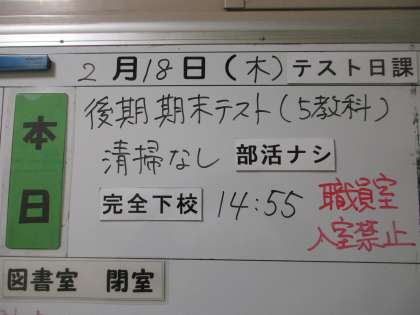 2月18日(木)テスト日課
本日
後期期末テスト(5教科)
清掃なし 部活ナシ
完全下校 14:55
職員室
入室禁止
図書室 閉室